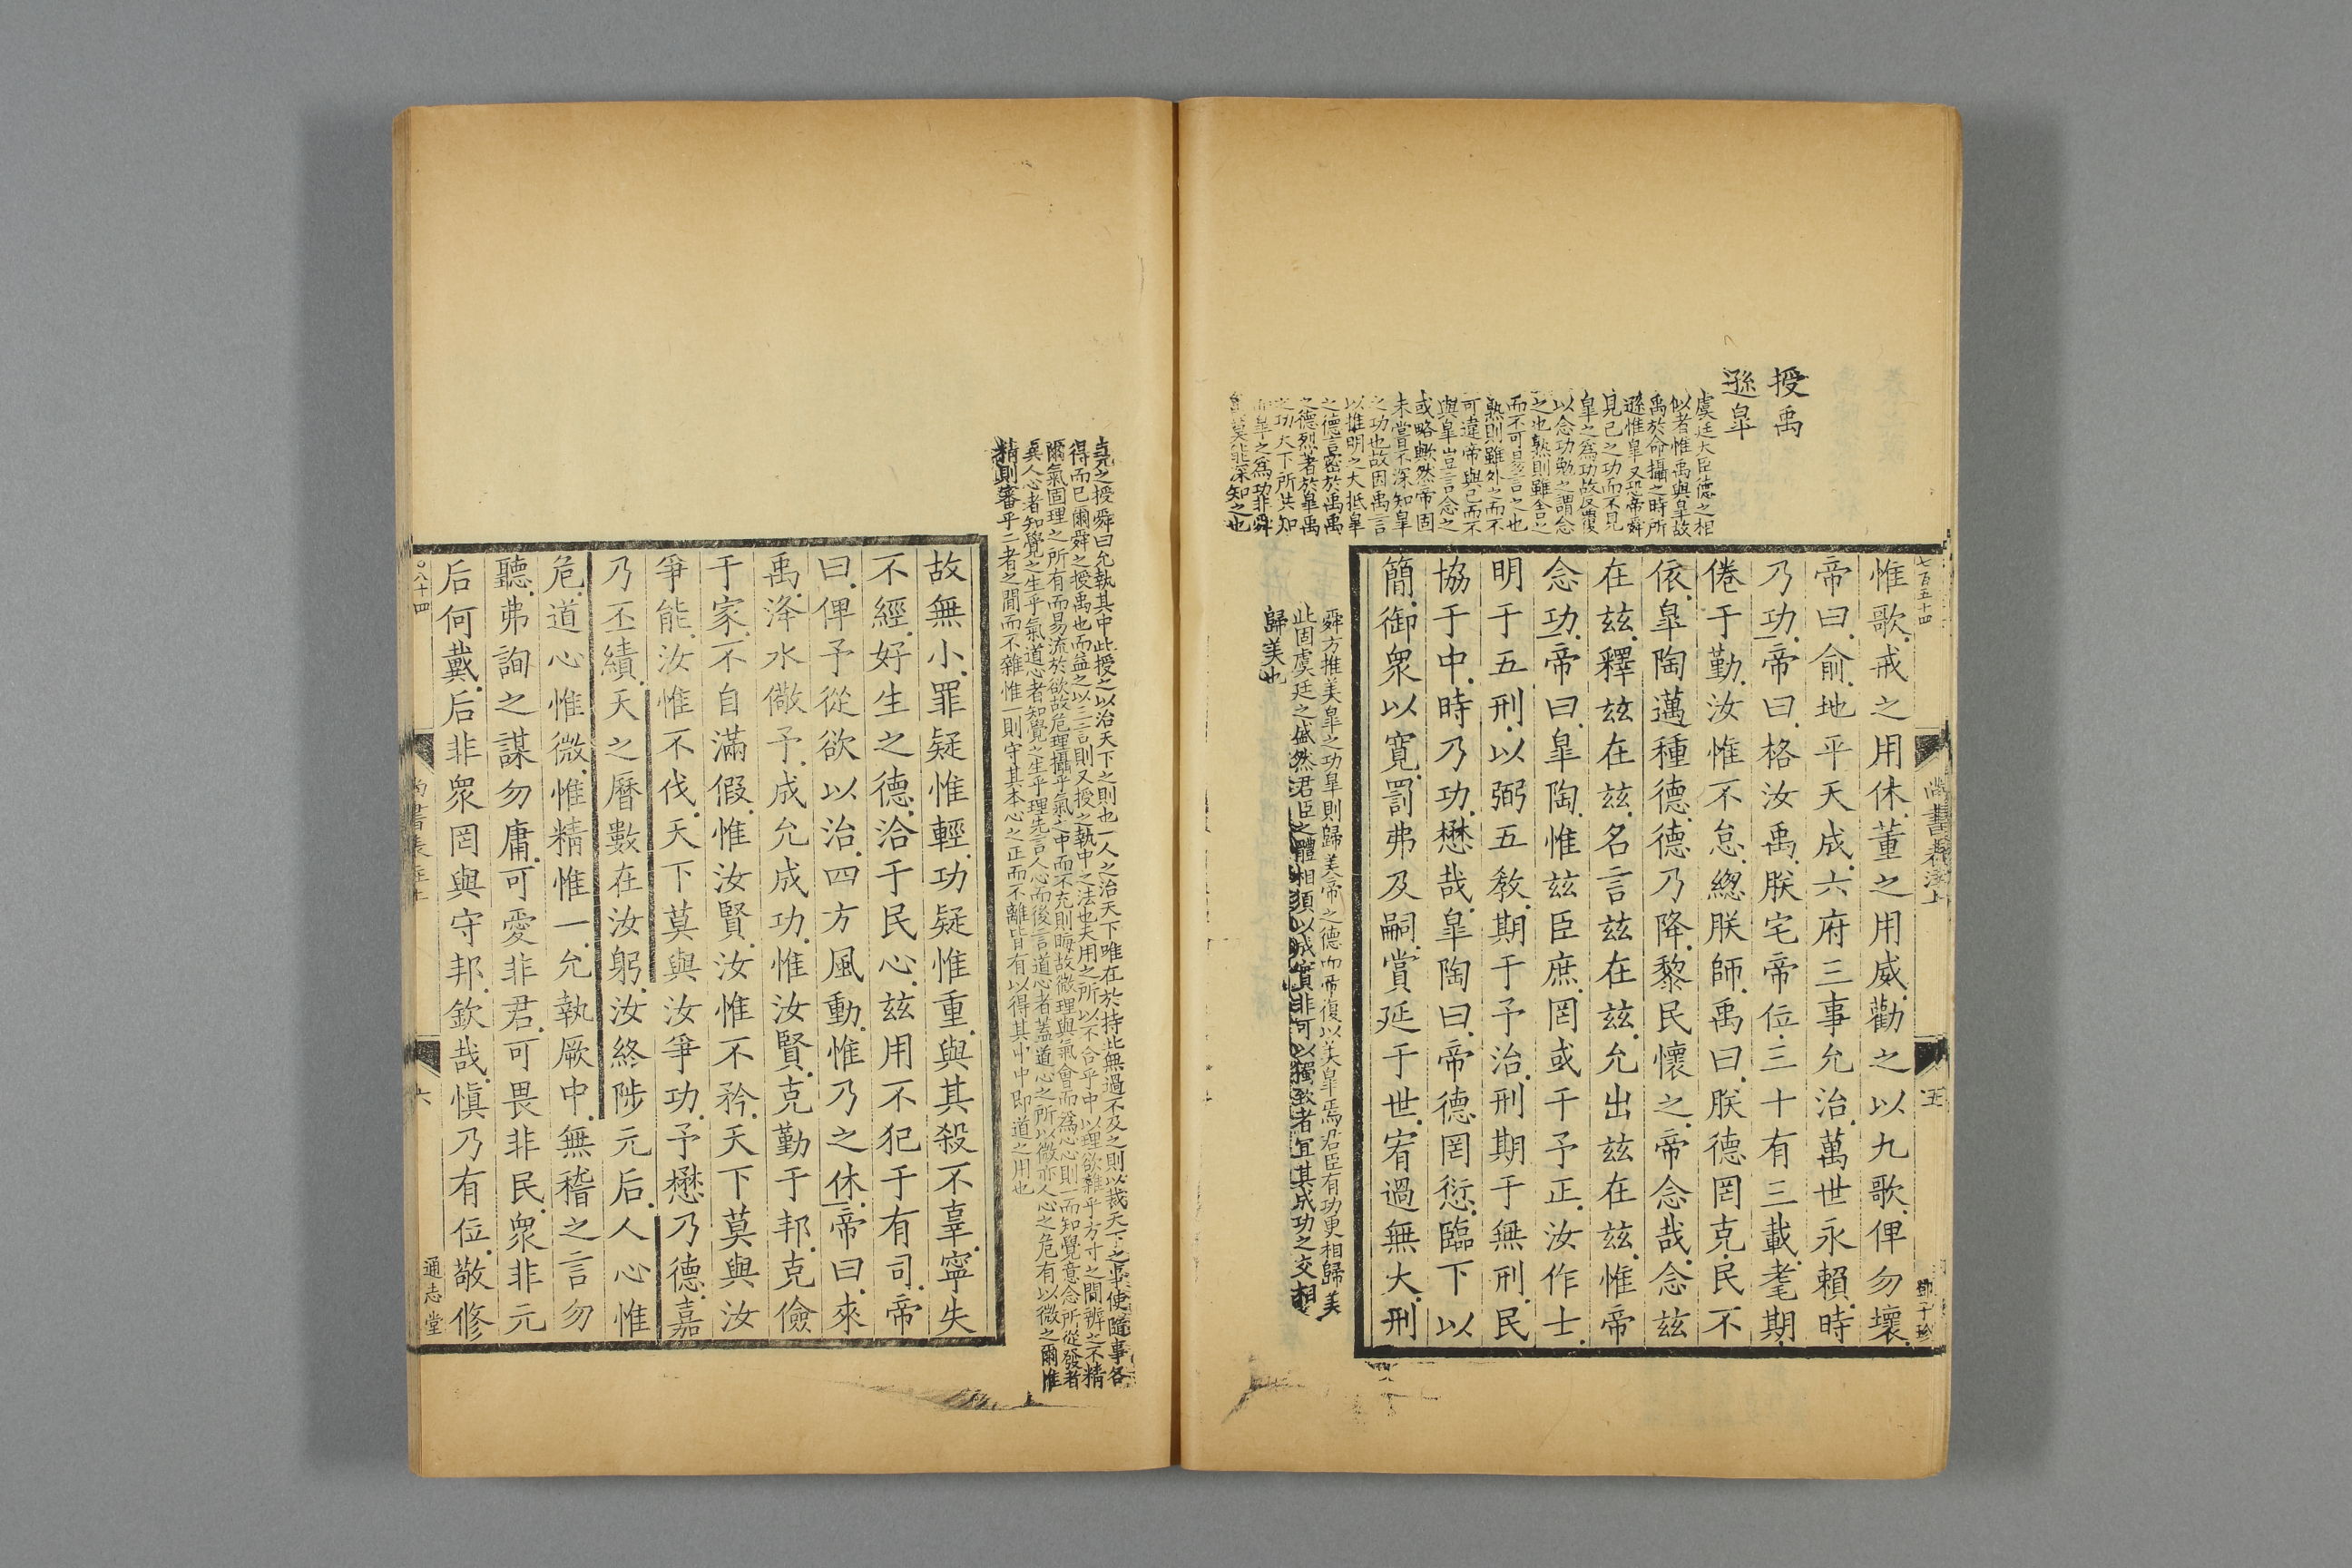 七百五十四
尚書表注上
五
鄧子珍
授禹
遜皐
虞廷大臣德之相
似者惟禹與皐故
禹於命攝之時所
遜惟皐又恐帝舜
見己之功而不見
皐之爲功故反覆
以念功勉之謂念
之也熟則雖舍之
而不可易言之也
熟則雖外之而不
可違帝與己而不
與皐豈言念之
或略歟然帝固
未嘗不深知皐
之功也故因禹言
以推明之大抵皐
之德言密於禹禹
之德烈著於皐禹
之功天下所共知
而皐之爲功非舜
禹莫能深知之也
惟歌戒之用休董之用威勸之以九歌俾勿壞
帝曰俞地平天成六府三事允治萬世永賴時
乃功帝曰格汝禹朕宅帝位三十有三載耄期
倦于勤汝惟不怠緫朕師禹曰朕德罔克民不
依皐陶邁種德德乃降黎民懷之帝念哉念兹
在兹釋兹在兹名言兹在兹允出兹在兹惟帝
念功帝曰皐陶惟兹臣庶罔或干予正汝作士
明于五刑以弼五敎期于予治刑期于無刑民
協于中時乃功懋哉皐陶曰帝德罔愆臨下以
簡御衆以寛罰弗及嗣賞延于世宥過無大刑
舜方推美皐之功皐則歸美帝之德而帝復以美皐焉君臣有功更相歸美
此固虞廷之盛然君臣之體相須以成實非可以獨致者宜其成功之交相
歸美也
堯之授舜曰允執其中此授之以治天下之則也一人之治天下唯在於持此無過不及之則以裁天下之事使隨事各
得而已爾舜之授禹也而益之以三言則又授之執中之法也夫用之所以不合乎中以理欲雜乎方寸之間辨之不精
爾氣固理之所有而易流於欲故危理攝乎氣之中而不充則晦故微理與氣會而爲心心則一而知覺意念所從發者
異人心者知覺之生乎氣道心者知覺之生乎理先言人心而後言道心者蓋道心之所以微亦人心之危有以微之爾惟
精則審乎二者之間而不雜惟一則守其本心之正而不離皆有以得其中中即道之用也
故無小罪疑惟輕功疑惟重與其殺不辜寧失
不經好生之德洽于民心兹用不犯于有司帝
曰俾予從欲以治四方風動惟乃之休帝曰來
禹洚水儆予成允成功惟汝賢克勤于邦克儉
于家不自滿假惟汝賢汝惟不矜天下莫與汝
爭能汝惟不伐天下莫與汝爭功予懋乃德嘉
乃丕績天之曆數在汝躬汝終陟元后人心惟
危道心惟微惟精惟一允執厥中無稽之言勿
聽弗詢之謀勿庸可愛非君可畏非民衆非元
后何戴后非衆罔與守邦欽哉愼乃有位敬修
八十四
尚書表注上
六
通志堂